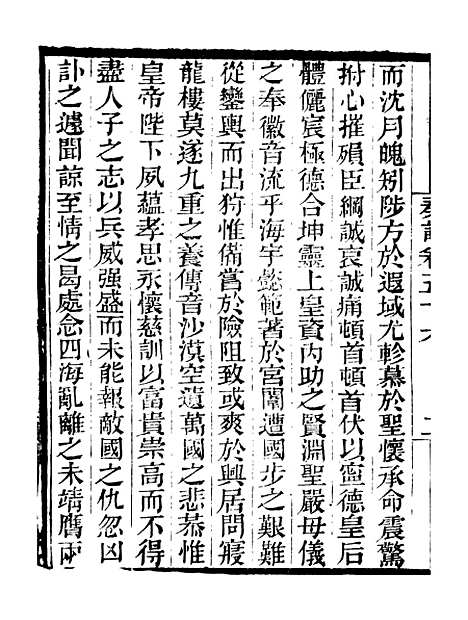 而沈月魄矧陟方於遐域尤軫慕於聖懷承命震驚
拊心摧殞臣綱誠哀誠痛頓首頓首伏以寧德皇后
體儷宸極德合坤靈上皇資內助之賢淵聖嚴母儀
之奉徽音流乎海宇懿範著於宮闈遭國步之艱難
從鑾輿而出狩惟備嘗於險阻致或爽於興居問寢
龍樓莫遂九重之養傳音沙漠空遺萬國之悲恭惟
皇帝陛下夙蘊孝思永懷慈訓以富貴崇高而不得
盡人子之志以兵威强盛而未能報敵國之仇忽凶
訃之遽聞諒至情之曷處念四海亂離之未靖膺兩